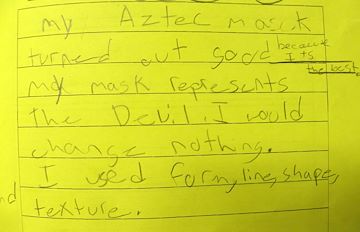 my Aztec mask
turned out good because
Its
the best
my mask represents
the Devil. I would
change nothing.
I used form, line, shape,
texture.